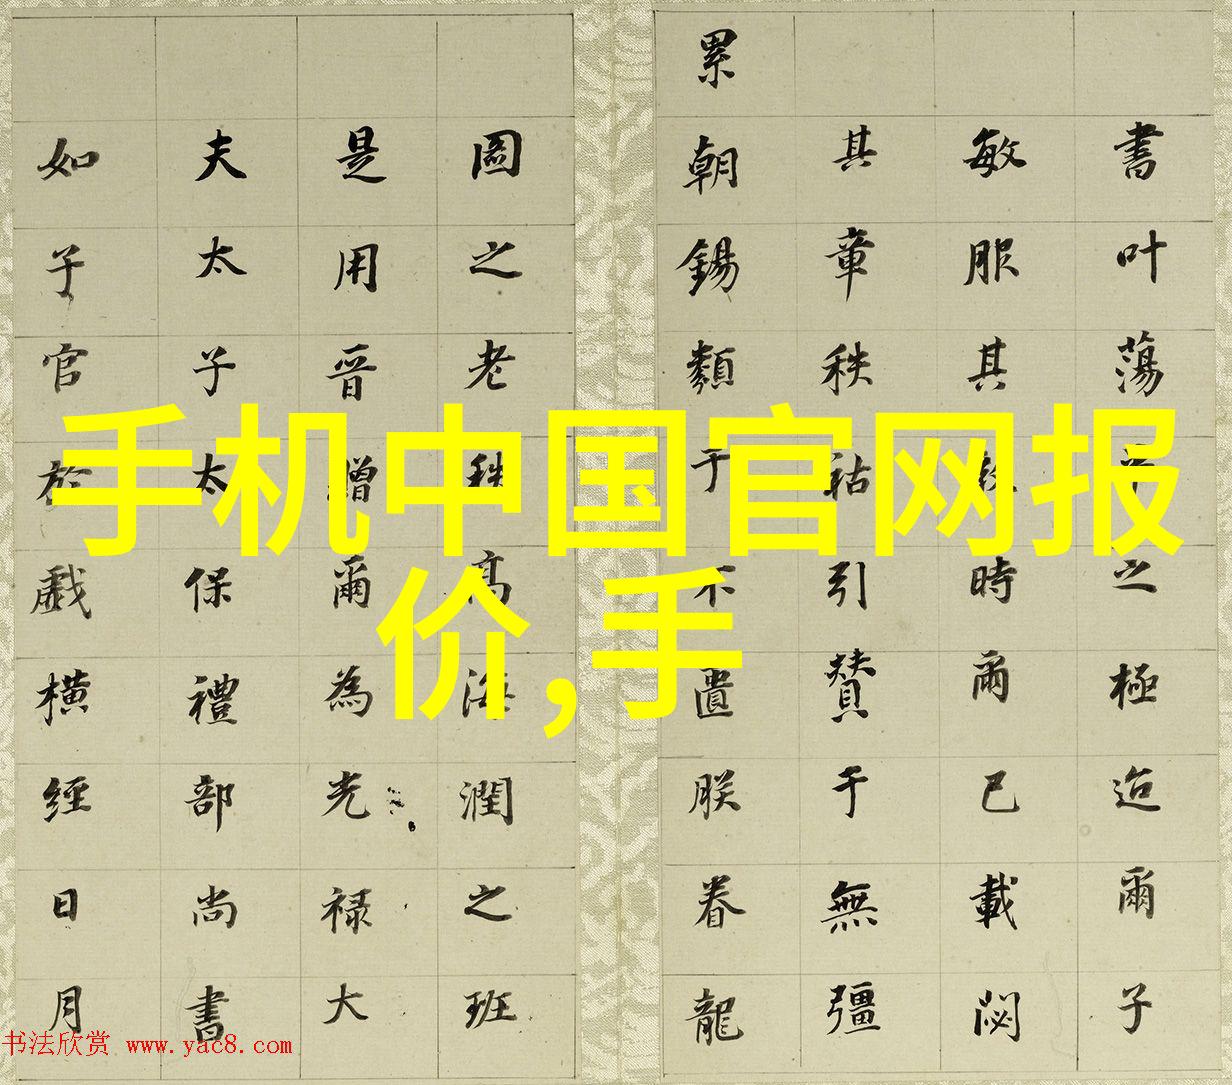 手机中国官网报
价,手
書叶蕩之極迨爾子
敏服其時爾已載閟
其章秩祜引贊于無彊
累朝錫類于不遺朕眷龍
圖之老秩高海潤之班
是用晉贈爾為光禄大
夫太子太保禮部尚書
如子官於戲橫經日月
书法欣赏 www.yac8.com